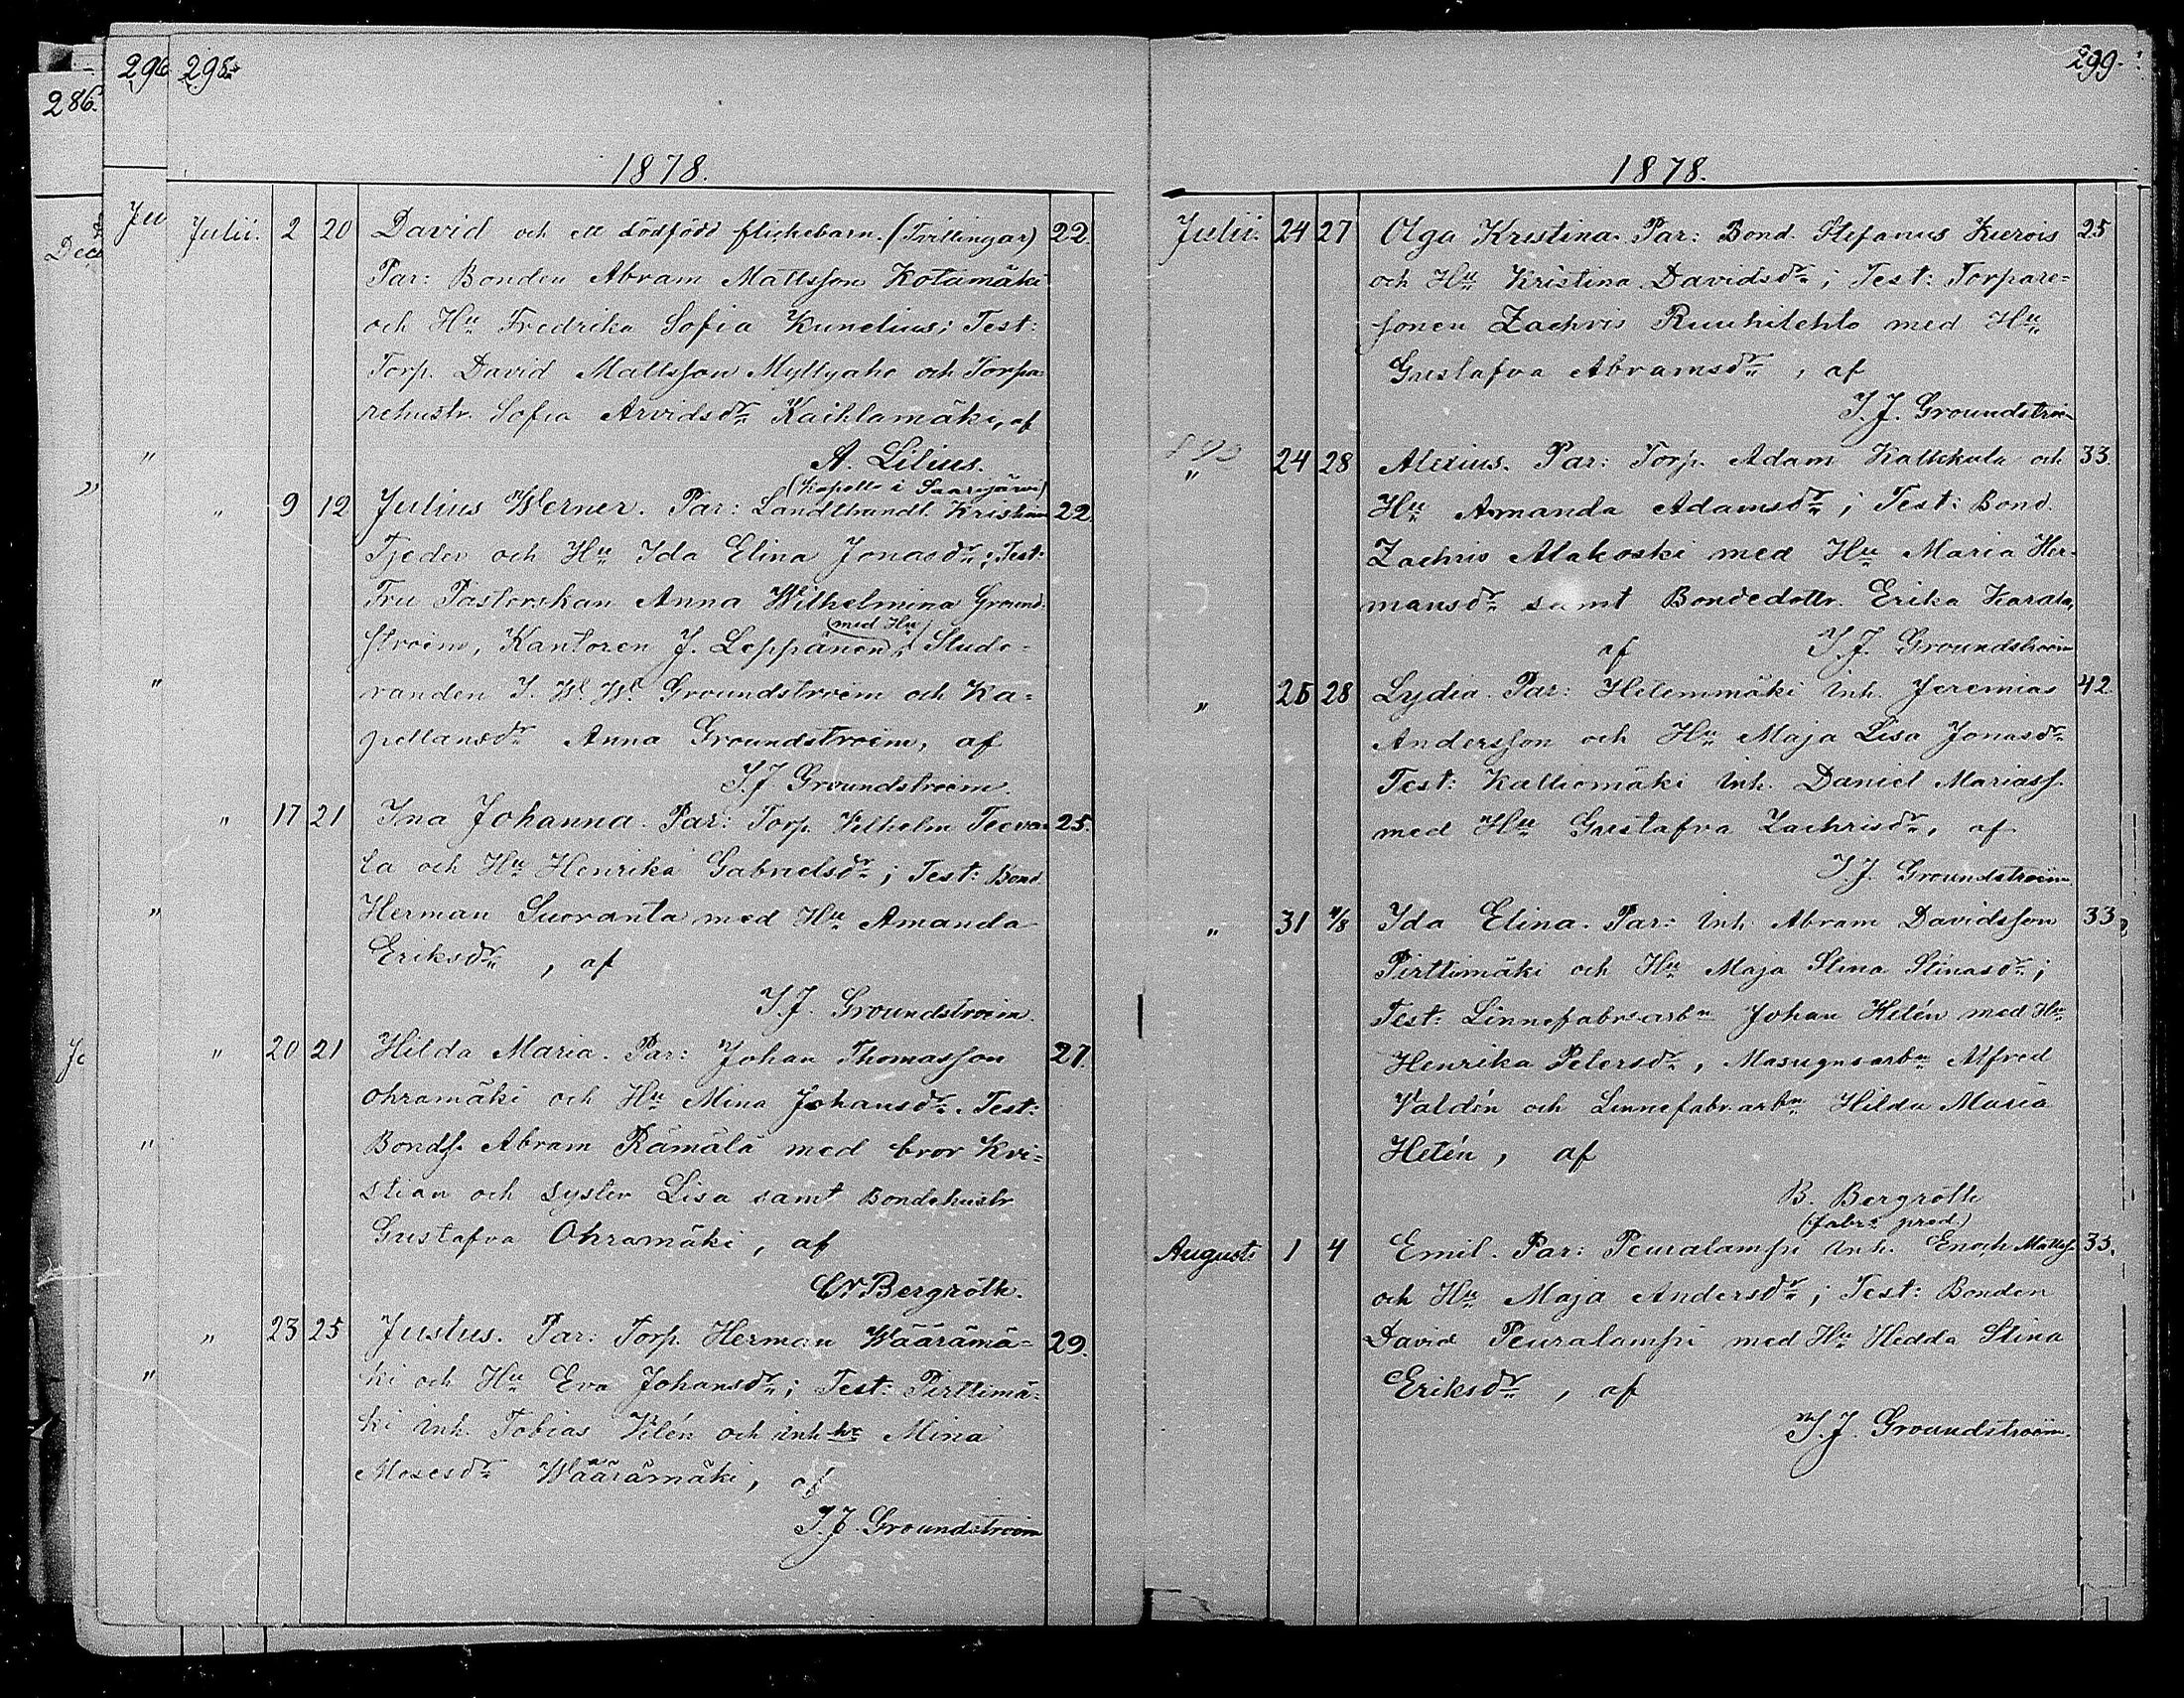 296. 298.
286.
1878.
Ju
Dec
Julii. 2 20 David och ett dödfödt flickebarn. (Tvillingar) 22.
Par: Bonden Abram Mattsson Kotamäki
och Hu Fredrika Sofia Kunelius; Test:
Torp. David Mattsson Myllyaho och Torpa=
rehustr. Sofia Arvidsdr Kaihlamäki, af
A. Lilius.
(Kapells i Saarijärvi)
" 9 12 Julius Werner. Par: Landthandl. Kristian 22.
Tjeder och Hu Ida Elina Jonasdr; Test:
Fru Pastorskan Anna Wilhelmina Ground=
stroëm, Kantoren J. Leppänen (med Hu), Stude=
randen I. W. W. Groundstroëm och Ka=
pellansdr Anna Groundstroëm, af
I. J. Groundstroëm.
" 17 21 Ina Johanna. Par: Torp. Vilhelm Teeva= 25.
la och Hu Henrika Gabrielsdr; Test: Bond.
Herman Suoranta med Hu Amanda
Eriksdr, af
I. J. Groundstroëm.
" 20 21 Hilda Maria. Par: Johan Thomasson 27.
Ohramäki och Hu Mina Johansdr. Test:
Bonds. Abram Rämälä med bror Kri=
stian och syster Lisa samt Bondehustr
Gustafva Ohramäki, af
Bergroth.
" 23 25 Justus. Par: Torp. Herman Wäärämä= 29.
ki och Hu Eva Johansdr; Test: Pirttimä=
ki inh. Tobias Vilén och inh. Mina
Mosesdr Wäärämäki, af
I. J. Groundstroëm
299.
1878.
Julii. 24 27 Olga Kristina. Par: Bond. Stefanus Kurvis 25
och Hu Kristina Davidsdr; Test: Torpare=
sonen Zachris Ruuhilehto med Hu
Gustafva Abramsdr, af
I. J. Groundstroëm
" 24 28 Alexius. Par: Torp. Adam Kattekula och 33.
Hu Amanda Adamsdr; Test: Bond.
Zachris Alakoski med Hu Maria Her=
mansdr samt Bondedottr. Erika Karala,
af I. J. Groundstroëm
" 25 28 Lydia. Par: Hetemmäki inh. Jeremias 42.
Andersson och Hu Maja Lisa Jonasdr
Test: Kalliomäki inh. Daniel Mariass.
med Hu Gustafva Zachrisdr, af
I. J. Groundstroëm.
" 31 1/8 Ida Elina. Par: inh. Abram Davidsson 33.
Pirttimäki och Hu Maja Stina Stinasdr;
Test: Linnefabr. arbn Johan Helén med Hu
Henrika Petersdr, Masugnsarbn Alfred
Valdén och Linnefabr. arbn Hilda Maria
Helén, af
B. Bergroth
(fabr. pred.)
Augusti 1 4 Emil. Par: Peuralampi inh. Enoch Mattss. 35.
och Hu Maja Andersdr; Test: Bonden
David Peuralampi med Hu Hedda Stina
Eriksdr, af
I. J. Groundstroëm.